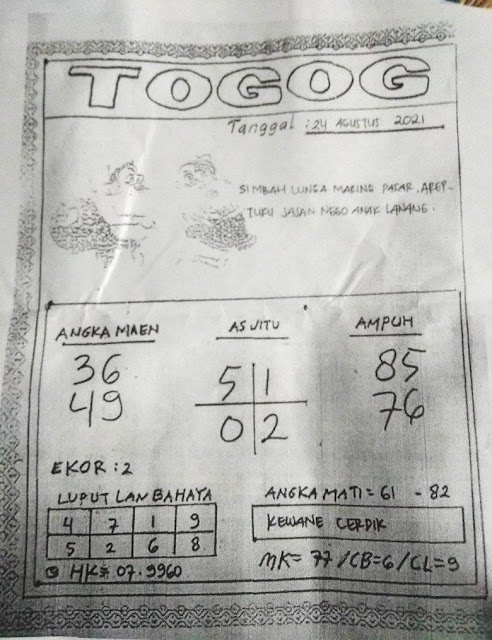 TOGOG
Tanggal : 24 AGUSTUS 2021
SIMBAH LUNGA MARING PASAR, AREP-
TUKU JAJAN NGGO ANAK LANANG.
ANGKA MAEN
36
49
AS JITU
5 1
0 2
AMPUH
85
76
EKOR : 2
LUPUT LAN BAHAYA
4 7 1 9
5 2 6 8
HK= 07.9960
ANGKA MATI = 61 - 82
KEWANE CERDIK
MK= 77 / CB=6 / CL=9